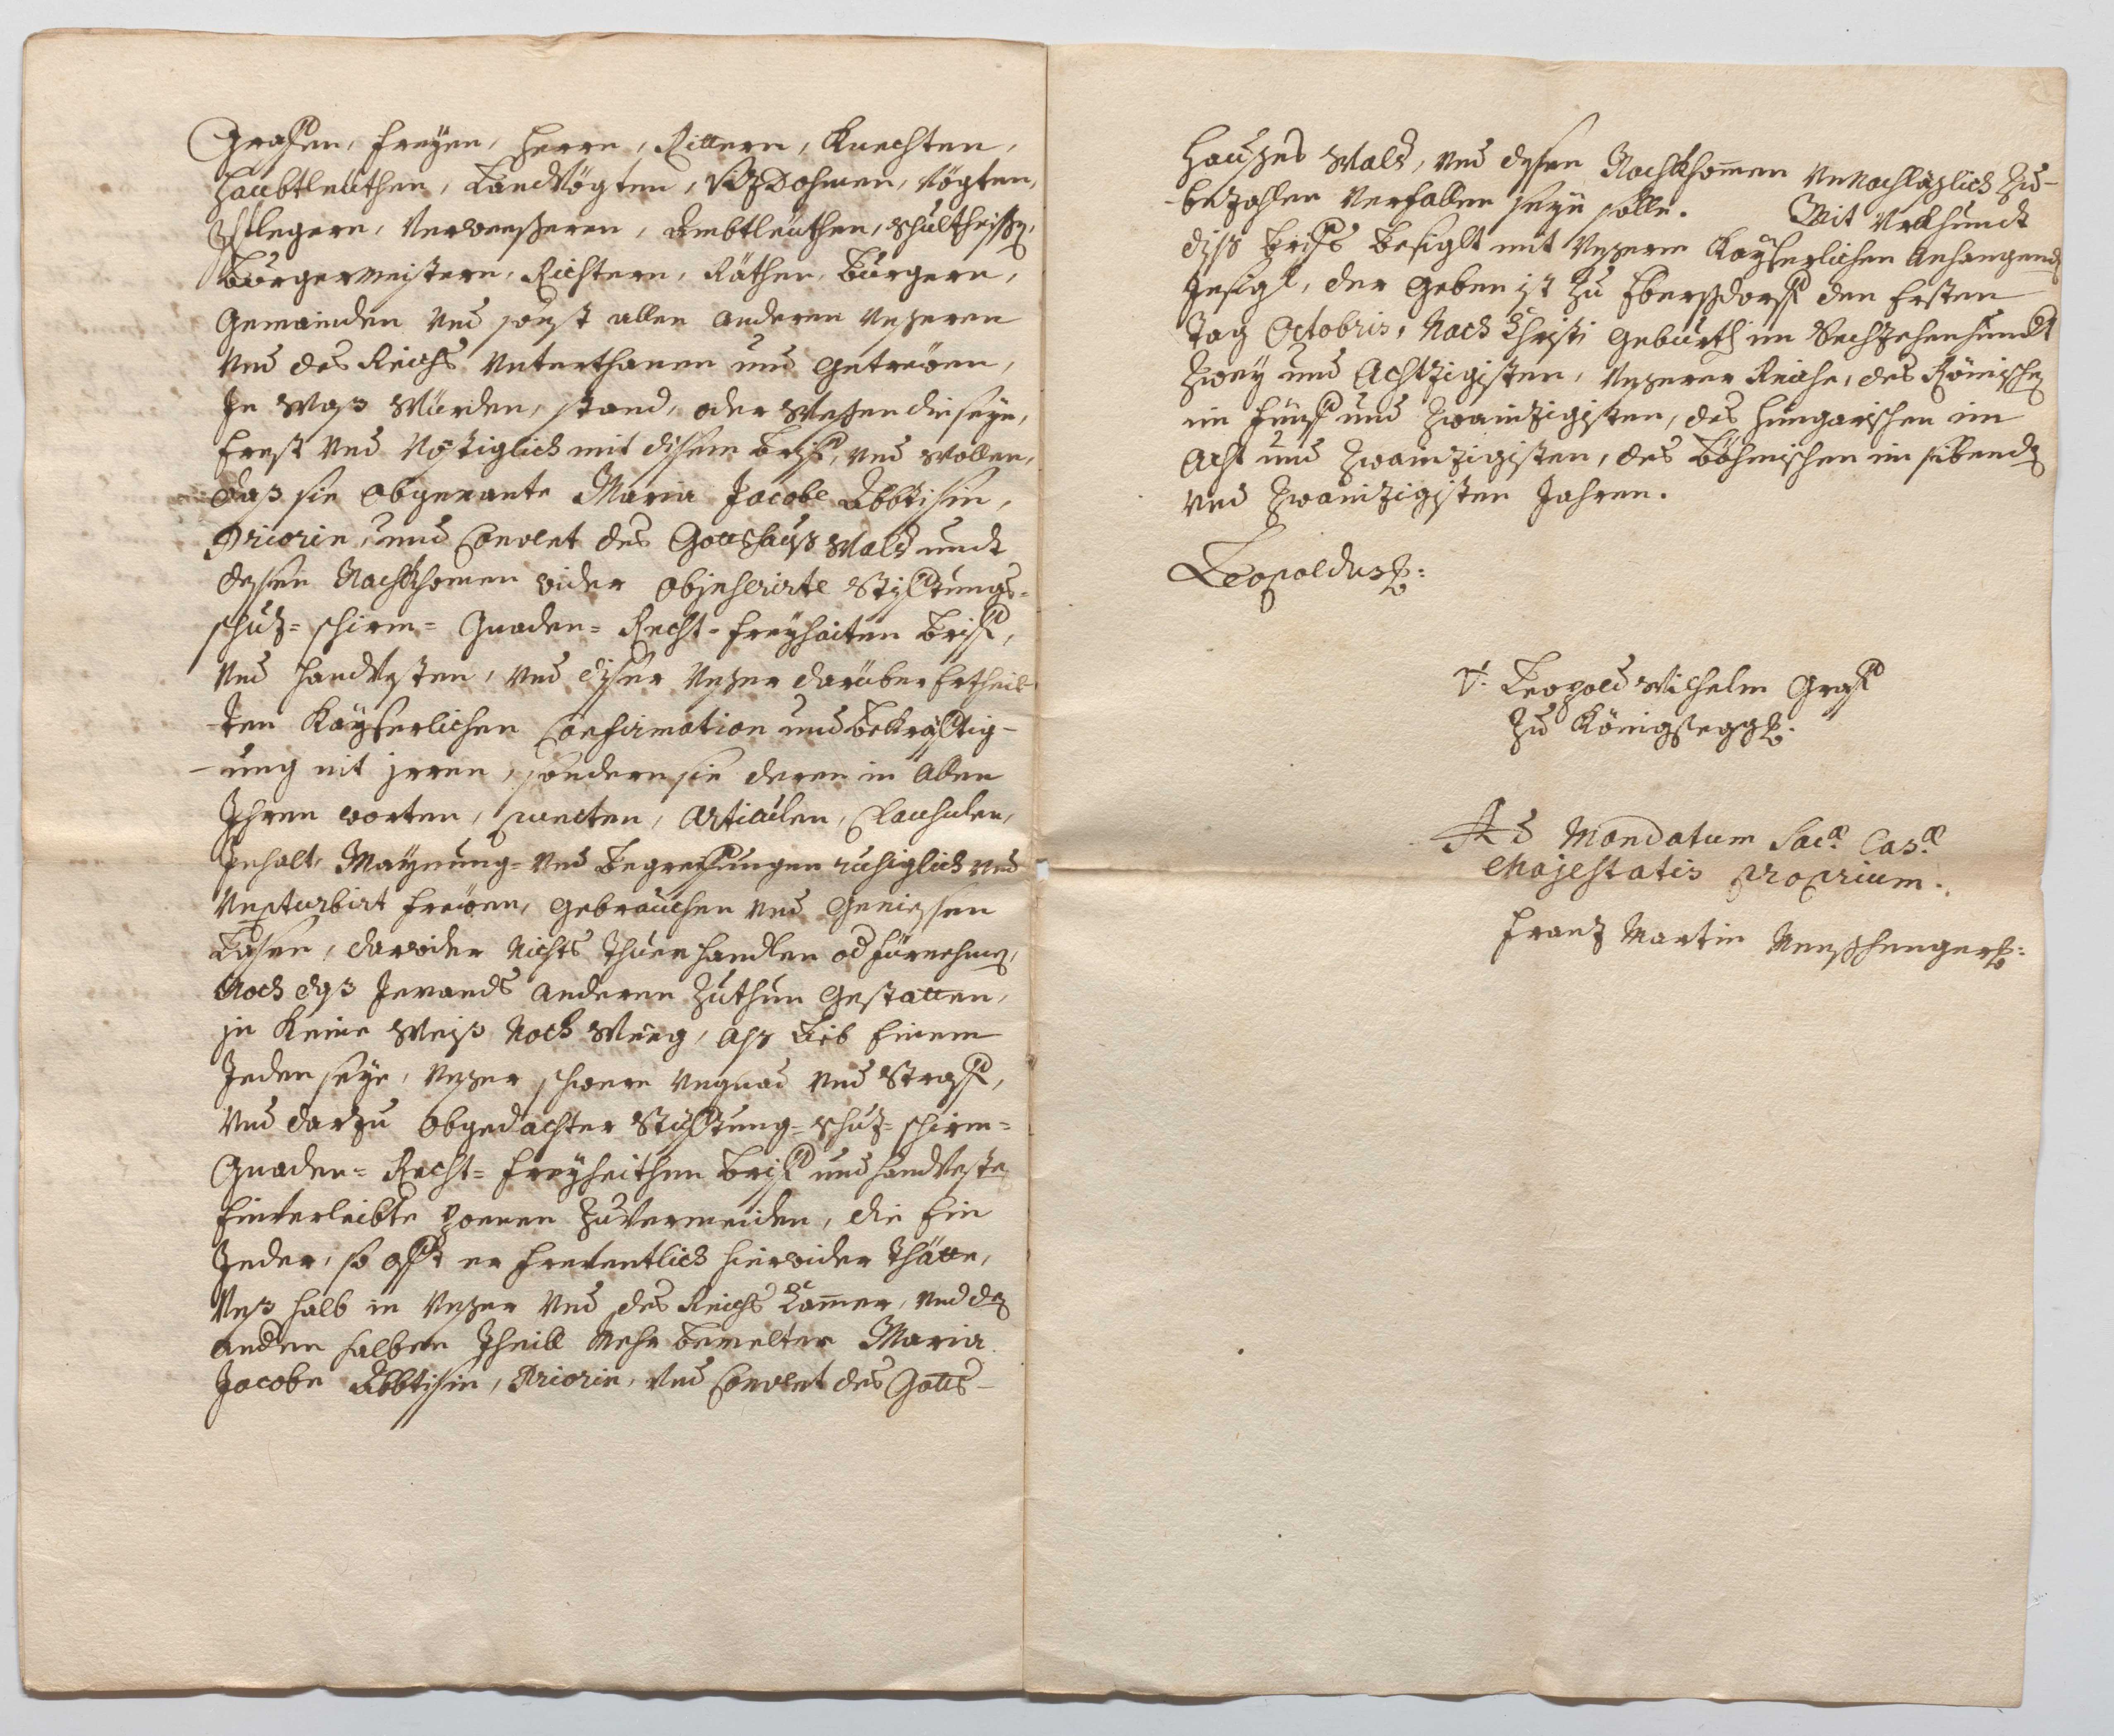 Grafen, freyen, herrn, Rittern, Knechten,
Haubtleüthen, Landtvögten, Vizdohmen, vögten,
Pflegern, Verweeßeren, Ambtleüthen, Schultheiß,
Bürgermeistern, Richtern, Räthen, Bürgern,
Gemainden und sonst allen anderen unßeren
und des Reichs unterthanen und getreüen,
In waß Würden, stand, oder Weßen die seyn,
Ernst und Vöstiglich mit dißem Brief, und wollen,
daß sie obgenante Maria Jacobe Äbbtißin,
Priorin, und Convent des Gottshauß Wald undt
deßen Nachkhomen wider obinserirte Stifftungs-
schuz- schirm- Gnaden- Recht- freyhaiten Brief,
und handvesten, und dißer unßer darüber Ertheil-
-ten Kayserlichen Confirmation und Bekräfftig-
-ung nit irren, sondern sie deren in allen
Ihren worten, puncten, Articulen, Clausulen,
Inhalt, Maynung- und Begreiffungen ruhiglich und
unpturbirt freüen, gebrauchen und genießen
Laßen, darwider Nichts thuen handlen od fürnehmen,
Noch diß Jemands anderen Zuthun gestatten,
in Keine Weiß Noch Weeg, Alß Lieb Einem
Jeden seye, unßer schwere ungnad und Straff,
und darzu obgedachter Stifftung- schuz- schirm-
Gnaden- Recht- freyheithen Brief und handveste
Einverleibte poenen zu Vermeiden, die Ein
Jeder, so offt er freventlich hierwider thätte,
Unß halb in unßer und des Reichs Cammer, und den
anderen halben Theill Mehr bemelter Maria
Jacobe Äbbtißin, Priorin, und Convent des Gotts-
Haußes Wald, und deßen Nachkhommen unnachläßlich zu-
-bezahlen Verfallen seyn solle. Mit Urkhundt
diß Briefs Besiglt mit unßerm Kayserlichen anhangend
Insigl, der geben ist zu Eberßdorff den Ersten
Tag Octobris, Nach Christi geburth im Sechzehenhundt
Zwey und Achtzigisten, unßerer Reiche, des Römischen
im fünff und Zwainzigisten, des hungarischen im
Acht und Zwainzigisten, des Böhmischen im sibend
und Zwainzigisten Jahren.
Leopoldus
Vt. Leopold Wilhelm Graff
zu Königsegg
Ad Mandatum Sacae Caesae
Majestatis proprium.
Frantz Martin Menßhenger